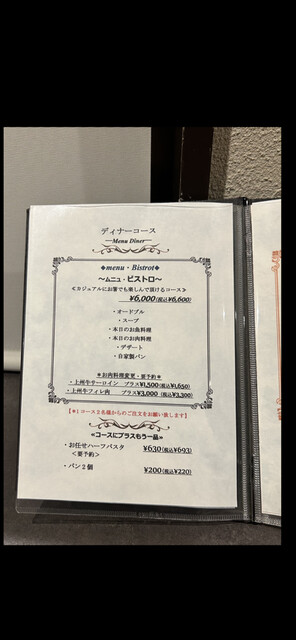 ディナーコース
Menu Diner
◆menu・Bistrot◆
～ムニュ・ビストロ～
≪カジュアルにお箸でも楽しんで頂けるコース≫
¥6,000(税込¥6,600)
・オードブル
・スープ
・本日のお魚料理
・本日のお肉料理
・デザート
・自家製パン
＊お肉料理変更・要予約＊
・上州牛サーロイン プラス¥1,500(税込¥1,650)
・上州牛フィレ肉 プラス¥3,000(税込¥3,300)
【＊】コース2名様からのご注文をお願い致します】
≪コースにプラスもう一品≫
・お任せハーフパスタ ¥630(税込¥693)
＜要予約＞
・パン2個 ¥200(税込¥220)